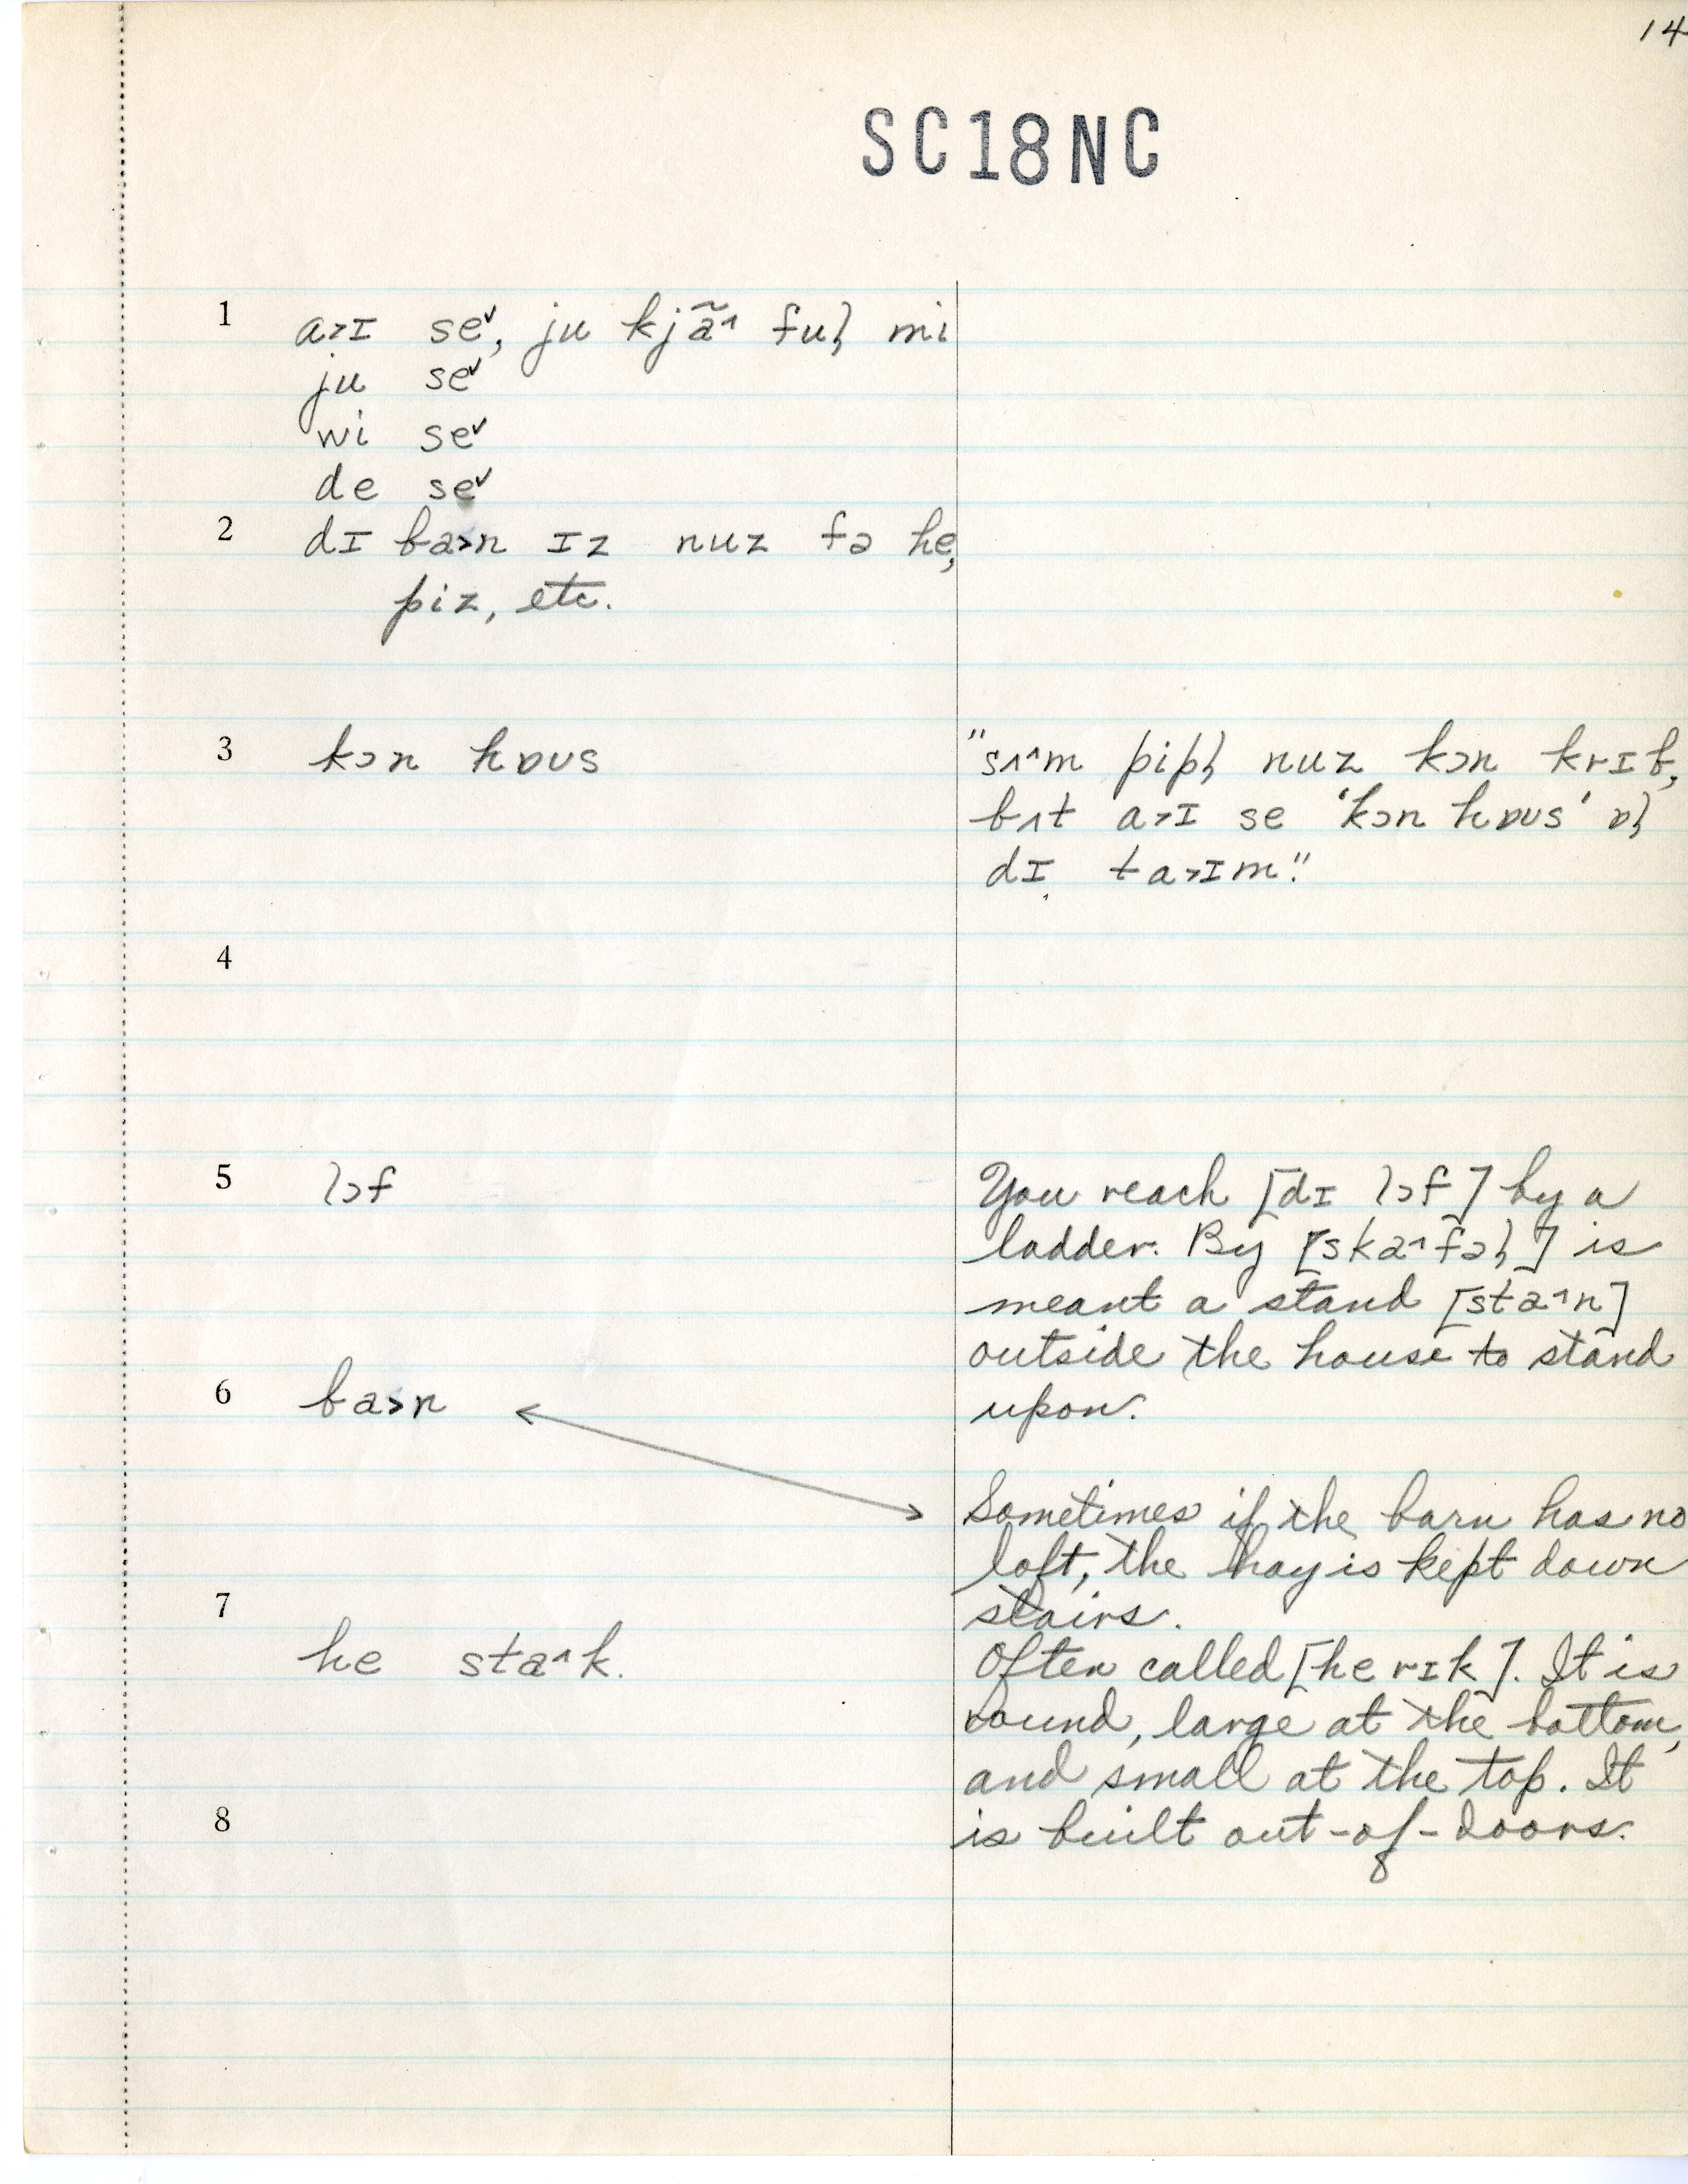 14
SC18NC
1 a˃ɪ se˅, ju kjã˄ ful̩ mi
ju se˅
wi se˅
de se˅
2 dɪ ba˃n ɪz nuz fə he,
piz, etc.
3 kɔn hɒʊs
"sʌ˄m pipl̩ nuz kɔn krɪb,
bʌt a˃ɪ se 'kɔn hɒʊs' ɒl
dɪ ta˃ɪm."
4
5 lɔf
You reach [dɪ lɔf] by a
ladder. By [ska˄fəl] is
meant a stand [sta˄n]
outside the house to stand
upon.
6 ba˃n
Sometimes if the barn has no
loft, the hay is kept down
stairs.
7
he sta˄k.
Often called [he rɪk]. It is
round, large at the bottom,
and small at the top. It
8 is built out-of-doors.